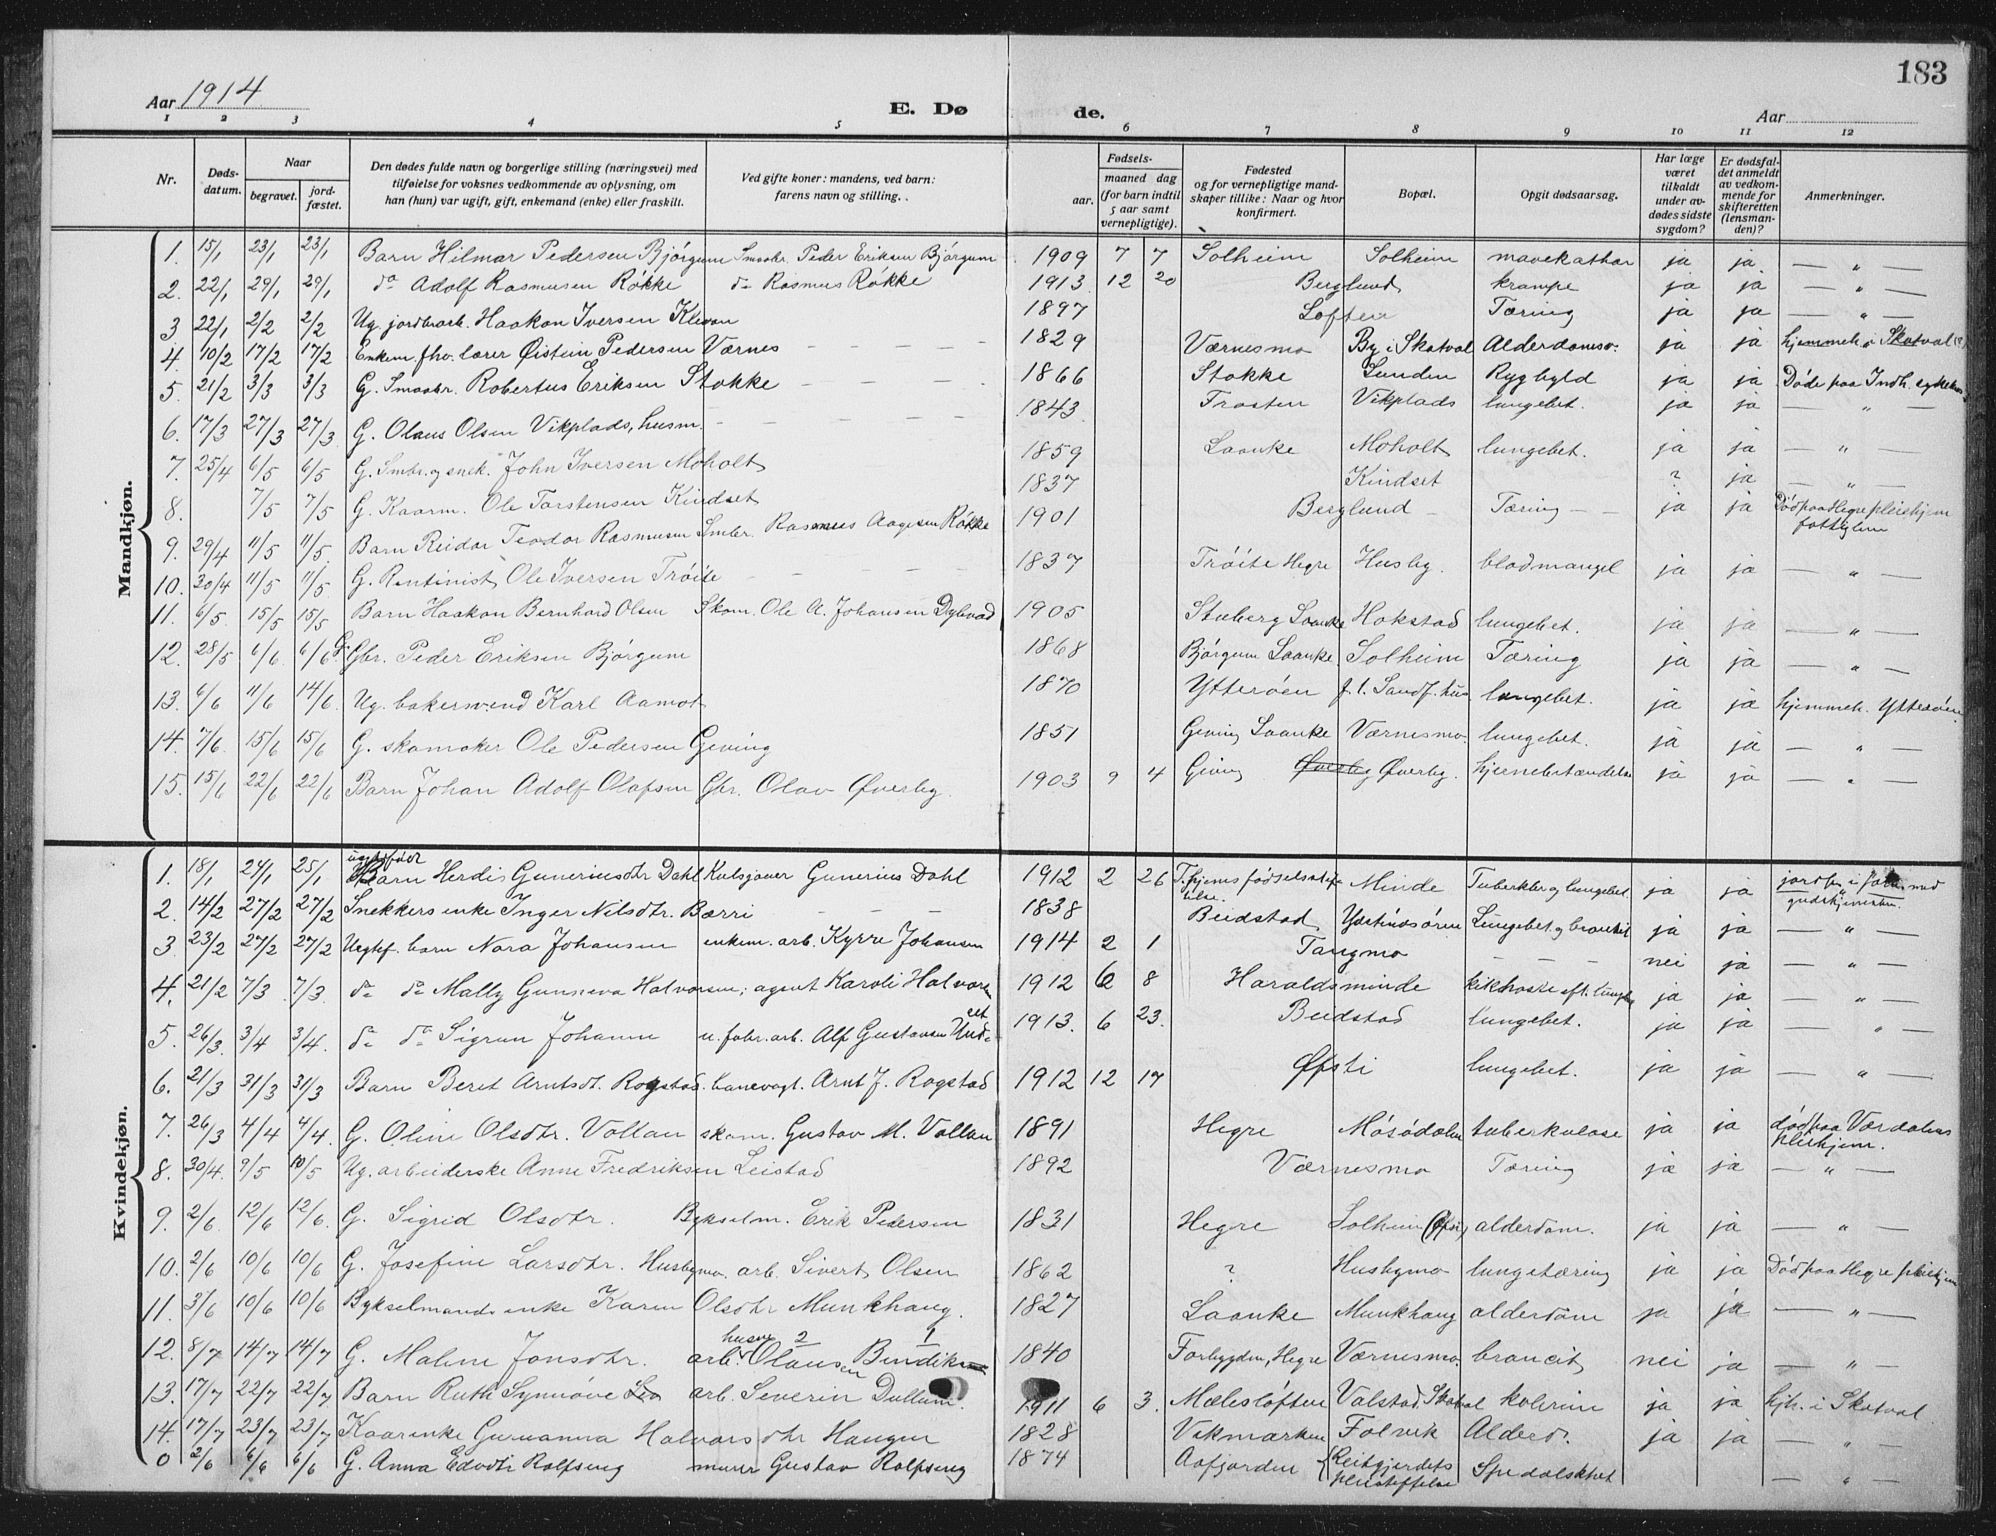 183
Aar 1914
E. Døde.
Aar
1 2 3 4 5 6 7 8 9 10 11 12
Nr.
Døds-datum.
Naar
begravet.
jord-fæstet.
Den dødes fulde navn og borgerlige stilling (næringsvei) med tilføielse for voksnes vedkommende av oplysning, om han (hun) var ugift, gift, enkemand (enke) eller fraskilt.
Ved gifte koner: mandens, ved barn: farens navn og stilling.
Fødsels-
aar.
maaned dag
(for barn indtil 5 aar samt vernepligtige).
Fødested og for vernepligtige mandskaper tillike: Naar og hvor konfirmert.
Bopæl.
Opgit dødsaarsag.
Har læge været tilkaldt under avdødes sidste sygdom?
Er dødsfaldet anmeldt av vedkommende for skifteretten (lensmanden)?
Anmerkninger.
Mandkjøn.
1. 15/1 23/1 23/1 Barn Hilmar Pedersen Bjørgum Smaabr. Peder Eriksen Bjørgum 1909 7 7 Solheim Solheim mavekathar ja ja — " —
2. 22/1 29/1 29/1 do Adolf Rasmusen Røkke do Rasmus Røkke 1913 12 20 Berglund krampe ja ja — " —
3 22/1 2/2 2/2 Ug. jordbrarb. Haakon Iversen Klevan 1897 Loften Tæring ja ja — " —
4. 10/2 17/2 17/2 Enkem. fhv. lærer Øistein Pedersen Værnes 1829 Værnesmo By i Skatval Alderdomssv. ja ja hjemmeh. i Skatval
5. 21/2 3/3 3/3 G. Smaabr. Robertus Eriksen Stokke 1866 Stokke Sunden Rygbyld ja ja Døde paa Indh. sykehus
6. 17/3 27/3 27/3 G. Olaus Olsen Vikplads, husm. 1843 Frosten Vikplads lungebet. ja ja — " —
7. 25/4 6/5 6/5 G. Smbr. og snek. John Iversen Moholt 1859 Laanke Moholt lungebet. ja ja — " —
8. 7/5 7/5 G. Kaarm. Ole Torstensen Kindset 1837 Kindset ? ja — " —
9. 29/4 11/5 11/5 Barn Reidar Teodor Rasmusen Smbr. Rasmus Aagesen Røkke 1901 Berglund Tæring ja ja Død paa Hegre pleiehjem
10. 30/4 11/5 11/5 G. Rentinist Ole Iversen Trøite 1837 Trøite Hegre Husby. blodmangel ja ja — " —
11. 6/5 15/5 15/5 Barn Haakon Bernhard Olsen Skom. Ole A. Johansen Dybvad 1905 Stuberg Laanke Hokstad lungebet. ja ja — " —
12. 28/5 6/6 6/6 G. Gbr. Peder Eriksen Bjørgum 1868 Bjørgum Laanke Solheim Tæring ja ja — " —
13. 6/6 11/6 14/6 Ug. bakersvend Karl Aamot 1870 Ytterøen f. t. Sandf. hus lungebet. ja ja hjemmeh. Ytterøen
14. 7/6 15/6 15/6 G. skomaker Ole Pedersen Geving 1851 Geving Laanke Værnesmo. lungebet. ja ja — " —
15. 15/6 22/6 22/6 Barn Johan Adolf Olafsen Gbr. Olav Øverby. 1903 9 4 Geving Øverby Øverby. hjernebetændelse ja ja — " —
Kvindekjøn.
1. 18/1 24/1 25/1 Barn Herdis Guneriusdtr Dahl Kulsjouer Gunerius Dahl 1912 2 26 Tr.hjems fødselsstiftelse. Minde Tuberkler og lungebet. ja ja
2. 14/2 27/2 27/2 Snekkers enke Inger Nilsdtr. Bærri 1838 Beidstad Ydstinesøren Lungebet. og bronkit ja ja — " —
3 23/2 27/2 27/2 Uegtef. barn Nora Johansen enkem. arb. Kyrre Johansen 1914 2 1 Tangmo nei ja — " —
4. 21/2 7/3 7/3 do do Mally Gunneva Halvorsen; agent Karoli Halvorsen 1912 6 8 Haraldsminde kikhoste eft. lungebet. ja ja — " —
5. 26/3 3/4 3/4. do do Sigrun Johanne u. fabr. arb. Alf Gustavsen 1913. 6 23. Beidstad lungebet. ja ja — " —
6. 21/3 31/3 31/3 Barn Beret Arntsdt. Rogstad. banevogt. Arnt J. Rogstad 1912 12 17 Øfsti lungebet. ja ja — " —
7. 26/3 4/4 4/4. G. Oline Olsdtr. Vollan skom. Gustav M. Vollan 1891 Hegre Møsødalen tuberkulose ja ja død paa Værdalens pleiehjem.
8. 30/4. 9/5 10/5 Ug. arbeiderske Anne Fredriksen Leistad 1892 Værnesmo Tæring ja ja — " —
9. 2/6. 12/6 12/6. G. Sigrid Olsdtr. Bykselm. Erik Pedersen 1831 Hegre Solheim alderdom. ja ja — " —
10. 2/6 10/6 10/6 G. Josefine Larsdtr. Husbymo. arb. Sivert Olsen 1862 ? Husbymo lungetæring ja ja Død paa Hegre pleiehjem
11. 3/6 10/6 10/6 Bykselmands enke Karen Olsdtr Munkhaug. 1827 Laanke Munkhaug alderdom ja ja — " —
12. 8/7 14/7 14/7 G. Malene Jonsdtr. husm 2 1 arb. Olaussen Bendik 1840 Forbygden, Hegre Værnesmo. broncit nei ja — " —
13. 17/7 22/7 22/7 Barn Ruth Synnøve arb. Severin Dullum. 1911 6 3. Mælesløften Valstad Skatval kolerine ja ja hjh. i Skatval
14. 17/7 23/7 23/7 Kaarenke Guruanna Halvorsdtr Haugen 1828 Vikmarken Folvik Alderd. ja ja — " —
0 2/6 6/6 6/6 G. Anna Edvdtr Rolfseng murer Gustav Rolfseng 1874 Aafjorden Reitgjerdets pleiestiftelse Spedalskhet — " —